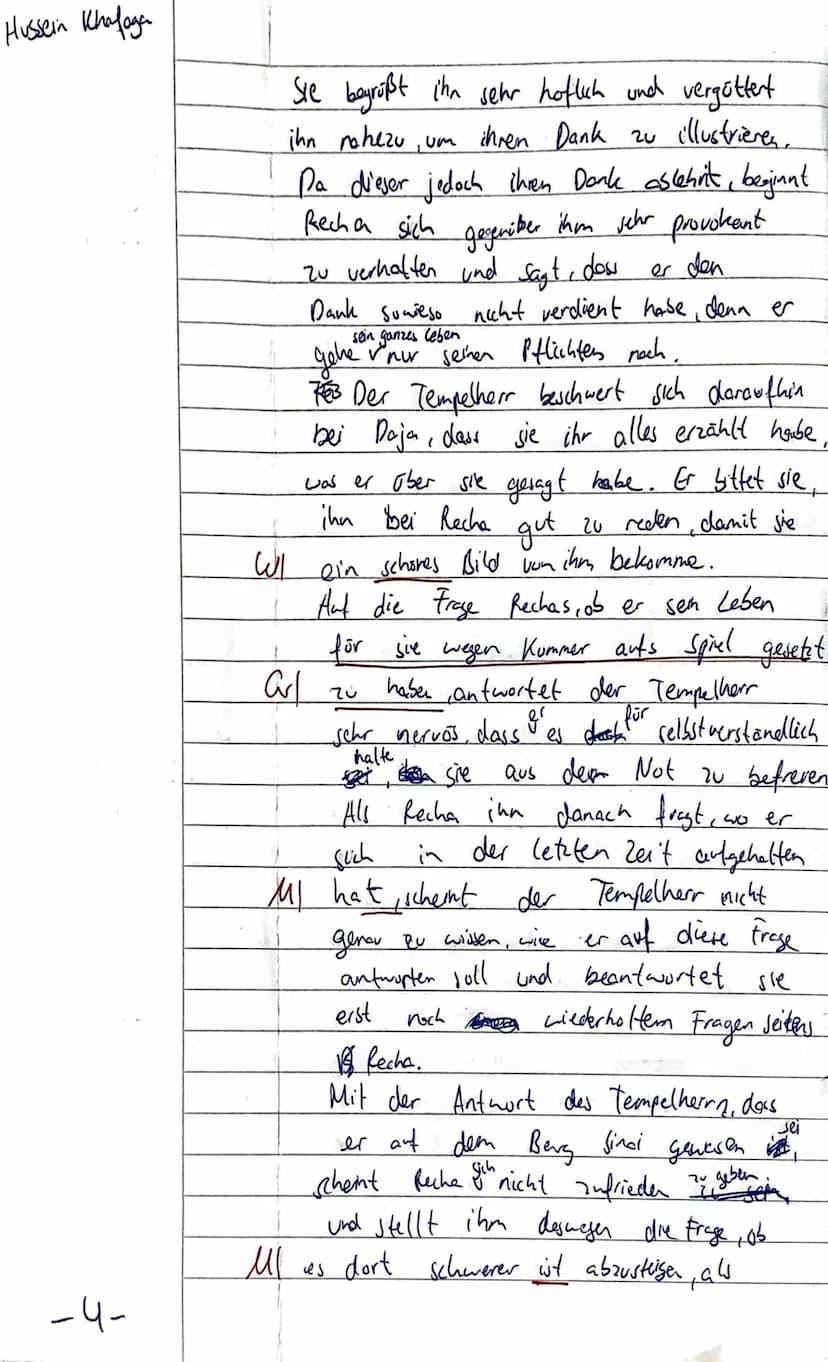 Hussein Khafaga
Sie begrüßt ihn sehr höflich und vergöttert
ihn nahezu, um ihren Dank zu illustrieren.
Da dieser jedoch ihren Dank ablehnt, beginnt
Recha sich gegenüber ihm sehr provokant
zu verhalten und sagt, dass er den
Dank sowieso nicht verdient habe, denn er
sein ganzes Leben
gehe nur seinen Pflichten nach.
Der Tempelherr beschwert sich daraufhin
bei Daja, dass sie ihr alles erzählt habe,
was er über sie gesagt habe. Er bittet sie,
ihn bei Recha gut zu reden, damit sie
W| ein schönes Bild von ihm bekomme.
Auf die Frage Rechas, ob er sein Leben
für sie wegen Kummer aufs Spiel gesetzt
Gr| zu haben, antwortet der Tempelherr
sehr nervös, dass er es für selbstverständlich
halte, sie aus der Not zu befreien
Als Recha ihn danach fragt, wo er
sich in der letzten Zeit aufgehalten
M| hat, scheint der Tempelherr nicht
genau zu wissen, wie er auf diese Frage
antworten soll und beantwortet sie
erst nach wiederholtem Fragen seitens
Recha.
Mit der Antwort des Tempelherrn, dass
er auf dem Berg Sinai gewesen sei,
scheint Recha sich nicht zufrieden zu geben
und stellt ihm deswegen die Frage, ob
M| es dort schwerer ist abzusteigen, als
-4-